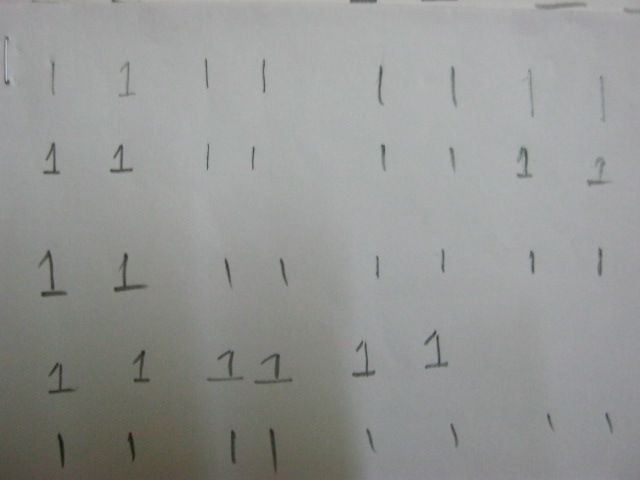 1 1 1 1 1 1 1 1
1 1 1 1 1 1 1 1
1 1 1 1 1 1 1 1
1 1 1 1 1 1
1 1 1 1 1 1 1 1